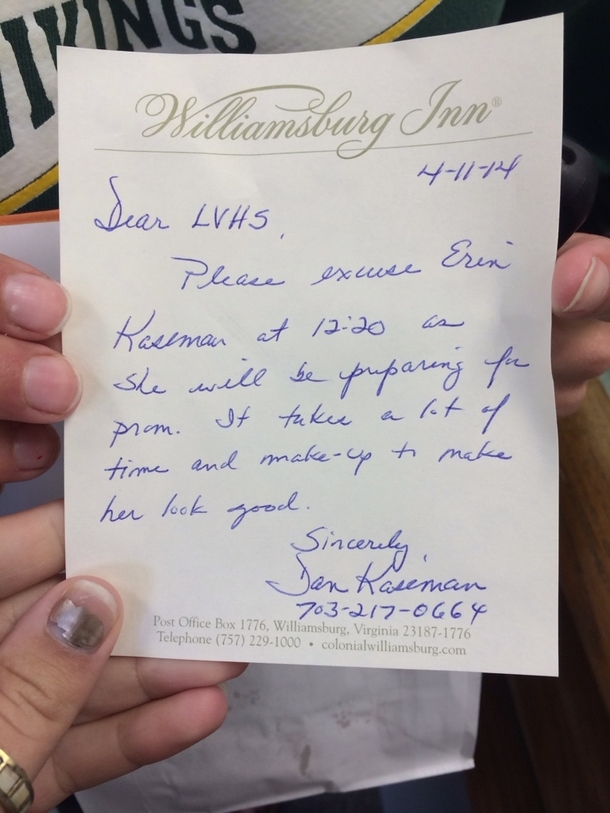 VIKINGS
Williamsburg Inn®
4-11-14
Dear LVHS,
Please excuse Erin
Kaseman at 12:20 as
she will be preparing for
prom. It takes a lot of
time and make-up to make
her look good.
Sincerely,
Dan Kaseman
703-217-0664
Post Office Box 1776, Williamsburg, Virginia 23187-1776
Telephone (757) 229-1000 • colonialwilliamsburg.com